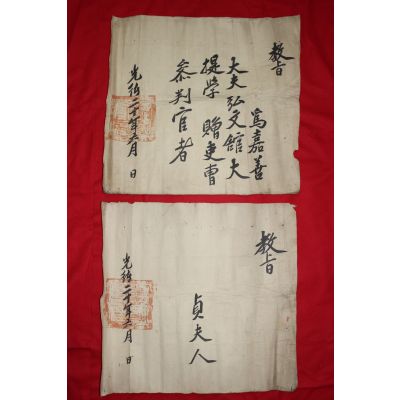 教旨
爲嘉善
大夫弘文館大
提学 贈吏曹
参判官者
光緒二十年六月 日
教旨
貞夫人
光緒二十年六月 日